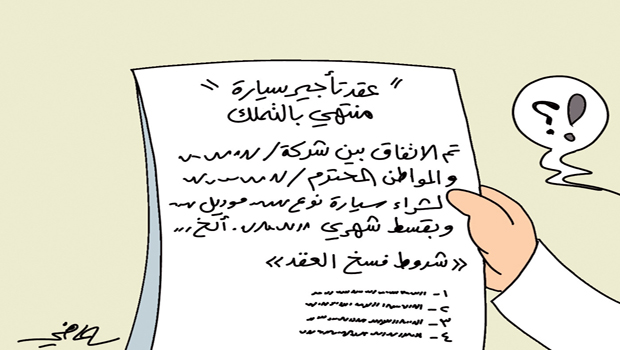 "عقد تأجير سيارة
منتهي بالتملك"
تم الاتفاق بين شركة/
والمواطن المحترم/
لشراء سيارة نوع موديل
وبقسط شهري . ألخ
«شروط فسخ العقد»
١-
٢-
٣-
٤-
؟!